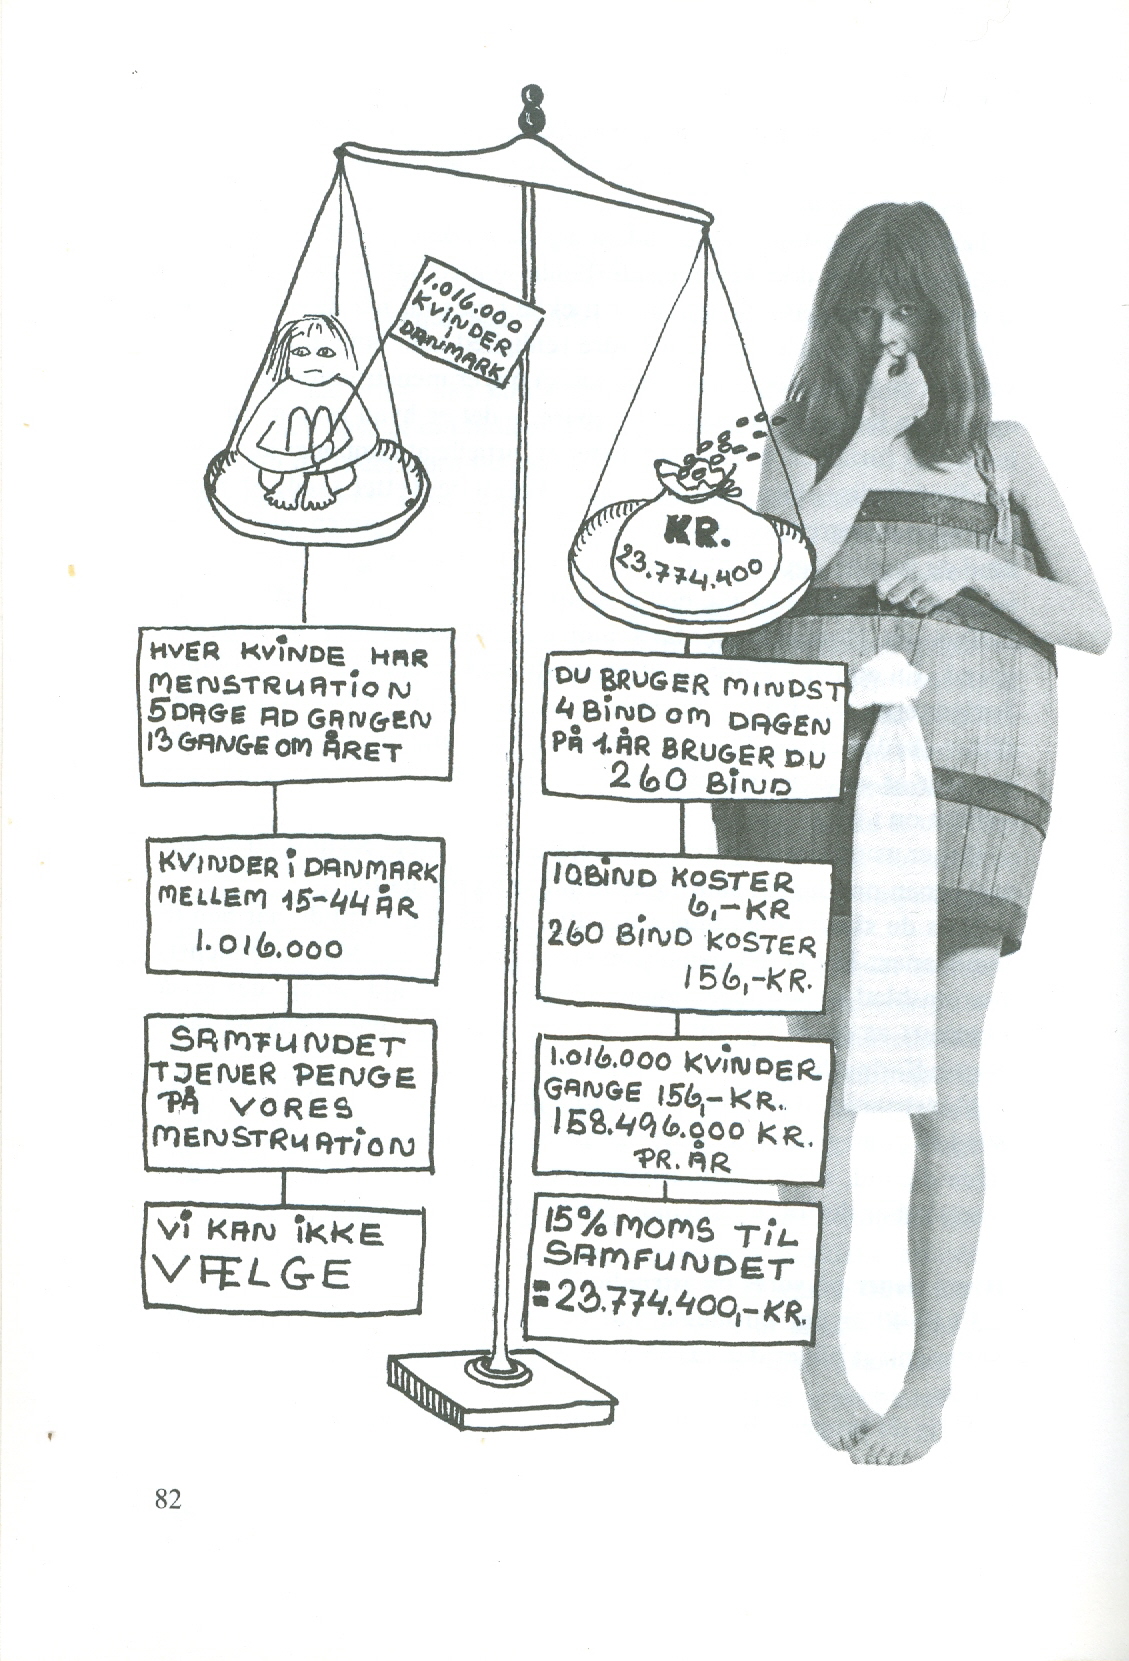 1.016.000
KVINDER
i
DANMARK
KR.
23.774.400
HVER KVINDE HAR
MENSTRUATION
5 DAGE AD GANGEN
13 GANGE OM ÅRET
KVINDER i DANMARK
MELLEM 15-44 ÅR
1.016.000
SAMFUNDET
TJENER PENGE
PÅ VORES
MENSTRUATION
Vi KAN iKKE
VÆLGE
DU BRUGER MINDST
4 BIND OM DAGEN
PÅ 1. ÅR BRUGER DU
260 BIND
10 BIND KOSTER
6,-KR
260 BIND KOSTER
156,-KR.
1.016.000 KVINDER
GANGE 156,-KR.
158.496.000 KR.
PR. ÅR
15% MOMS TIL
SAMFUNDET
=23.774.400,-KR.
82